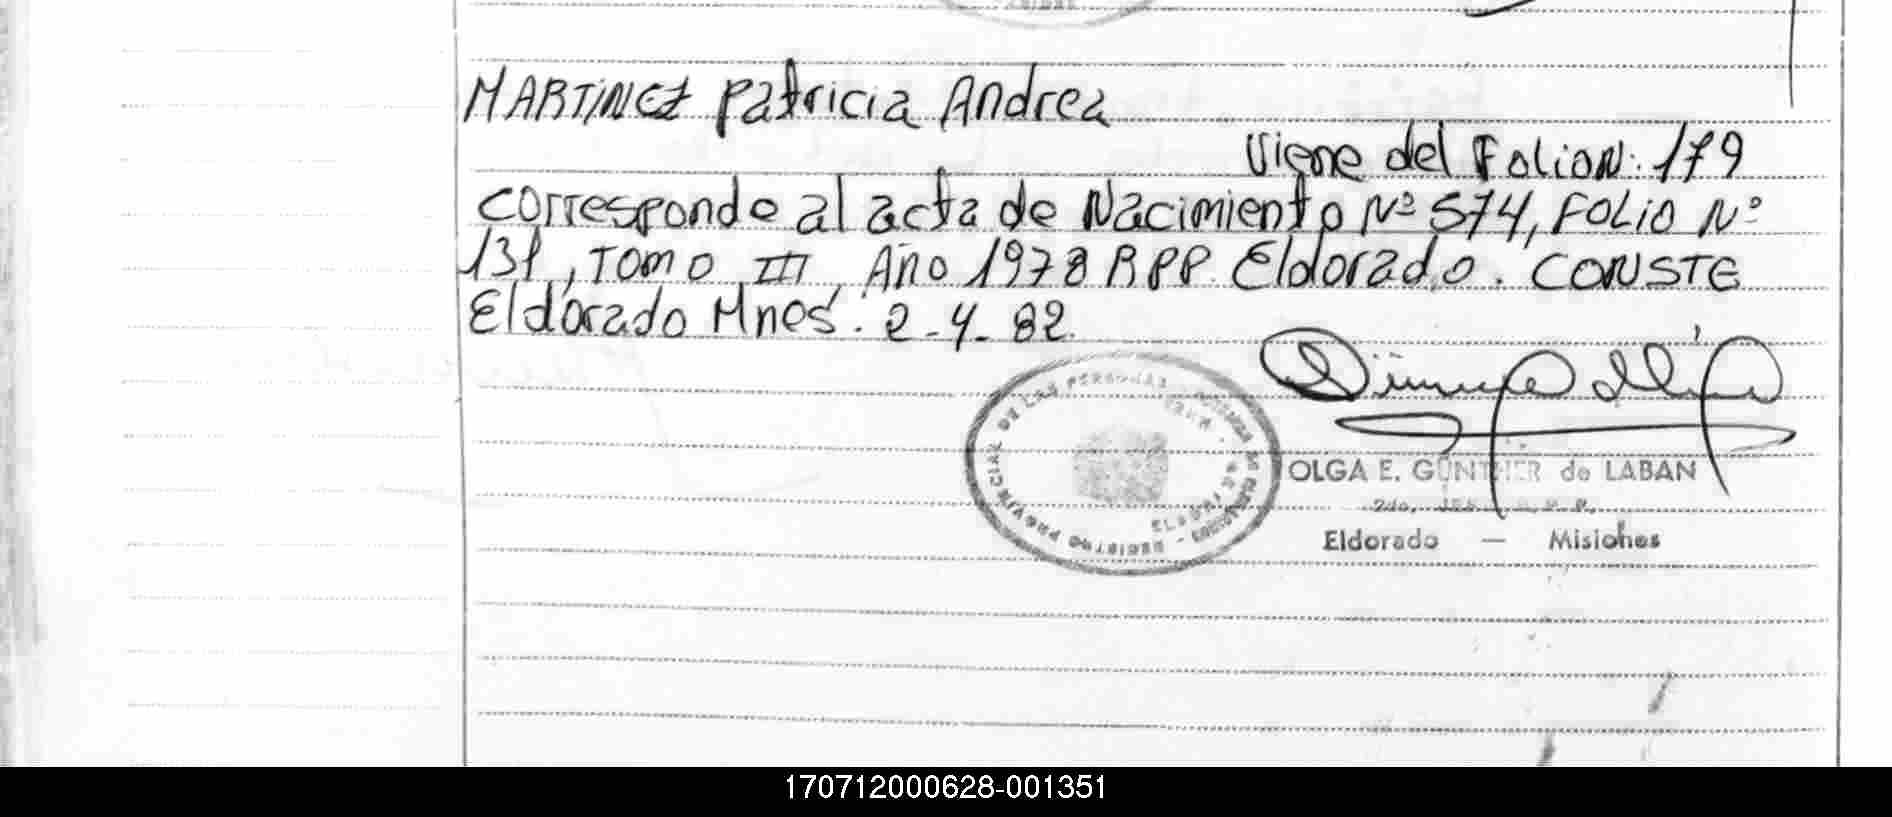 MARTINEZ Patricia Andrea
Viene del Folio N: 179
corresponde al acta de Nacimiento Nº 574, FOLIO Nº
131, TOMO III, Año 1978 RPP. Eldorado. CONSTE
Eldorado Mnes. 2-4-82.
REGISTRO PROVINCIAL DE LAS PERSONAS
OLGA E. GÜNTHER de LABAN
Eldorado — Misiones
170712000628-001351